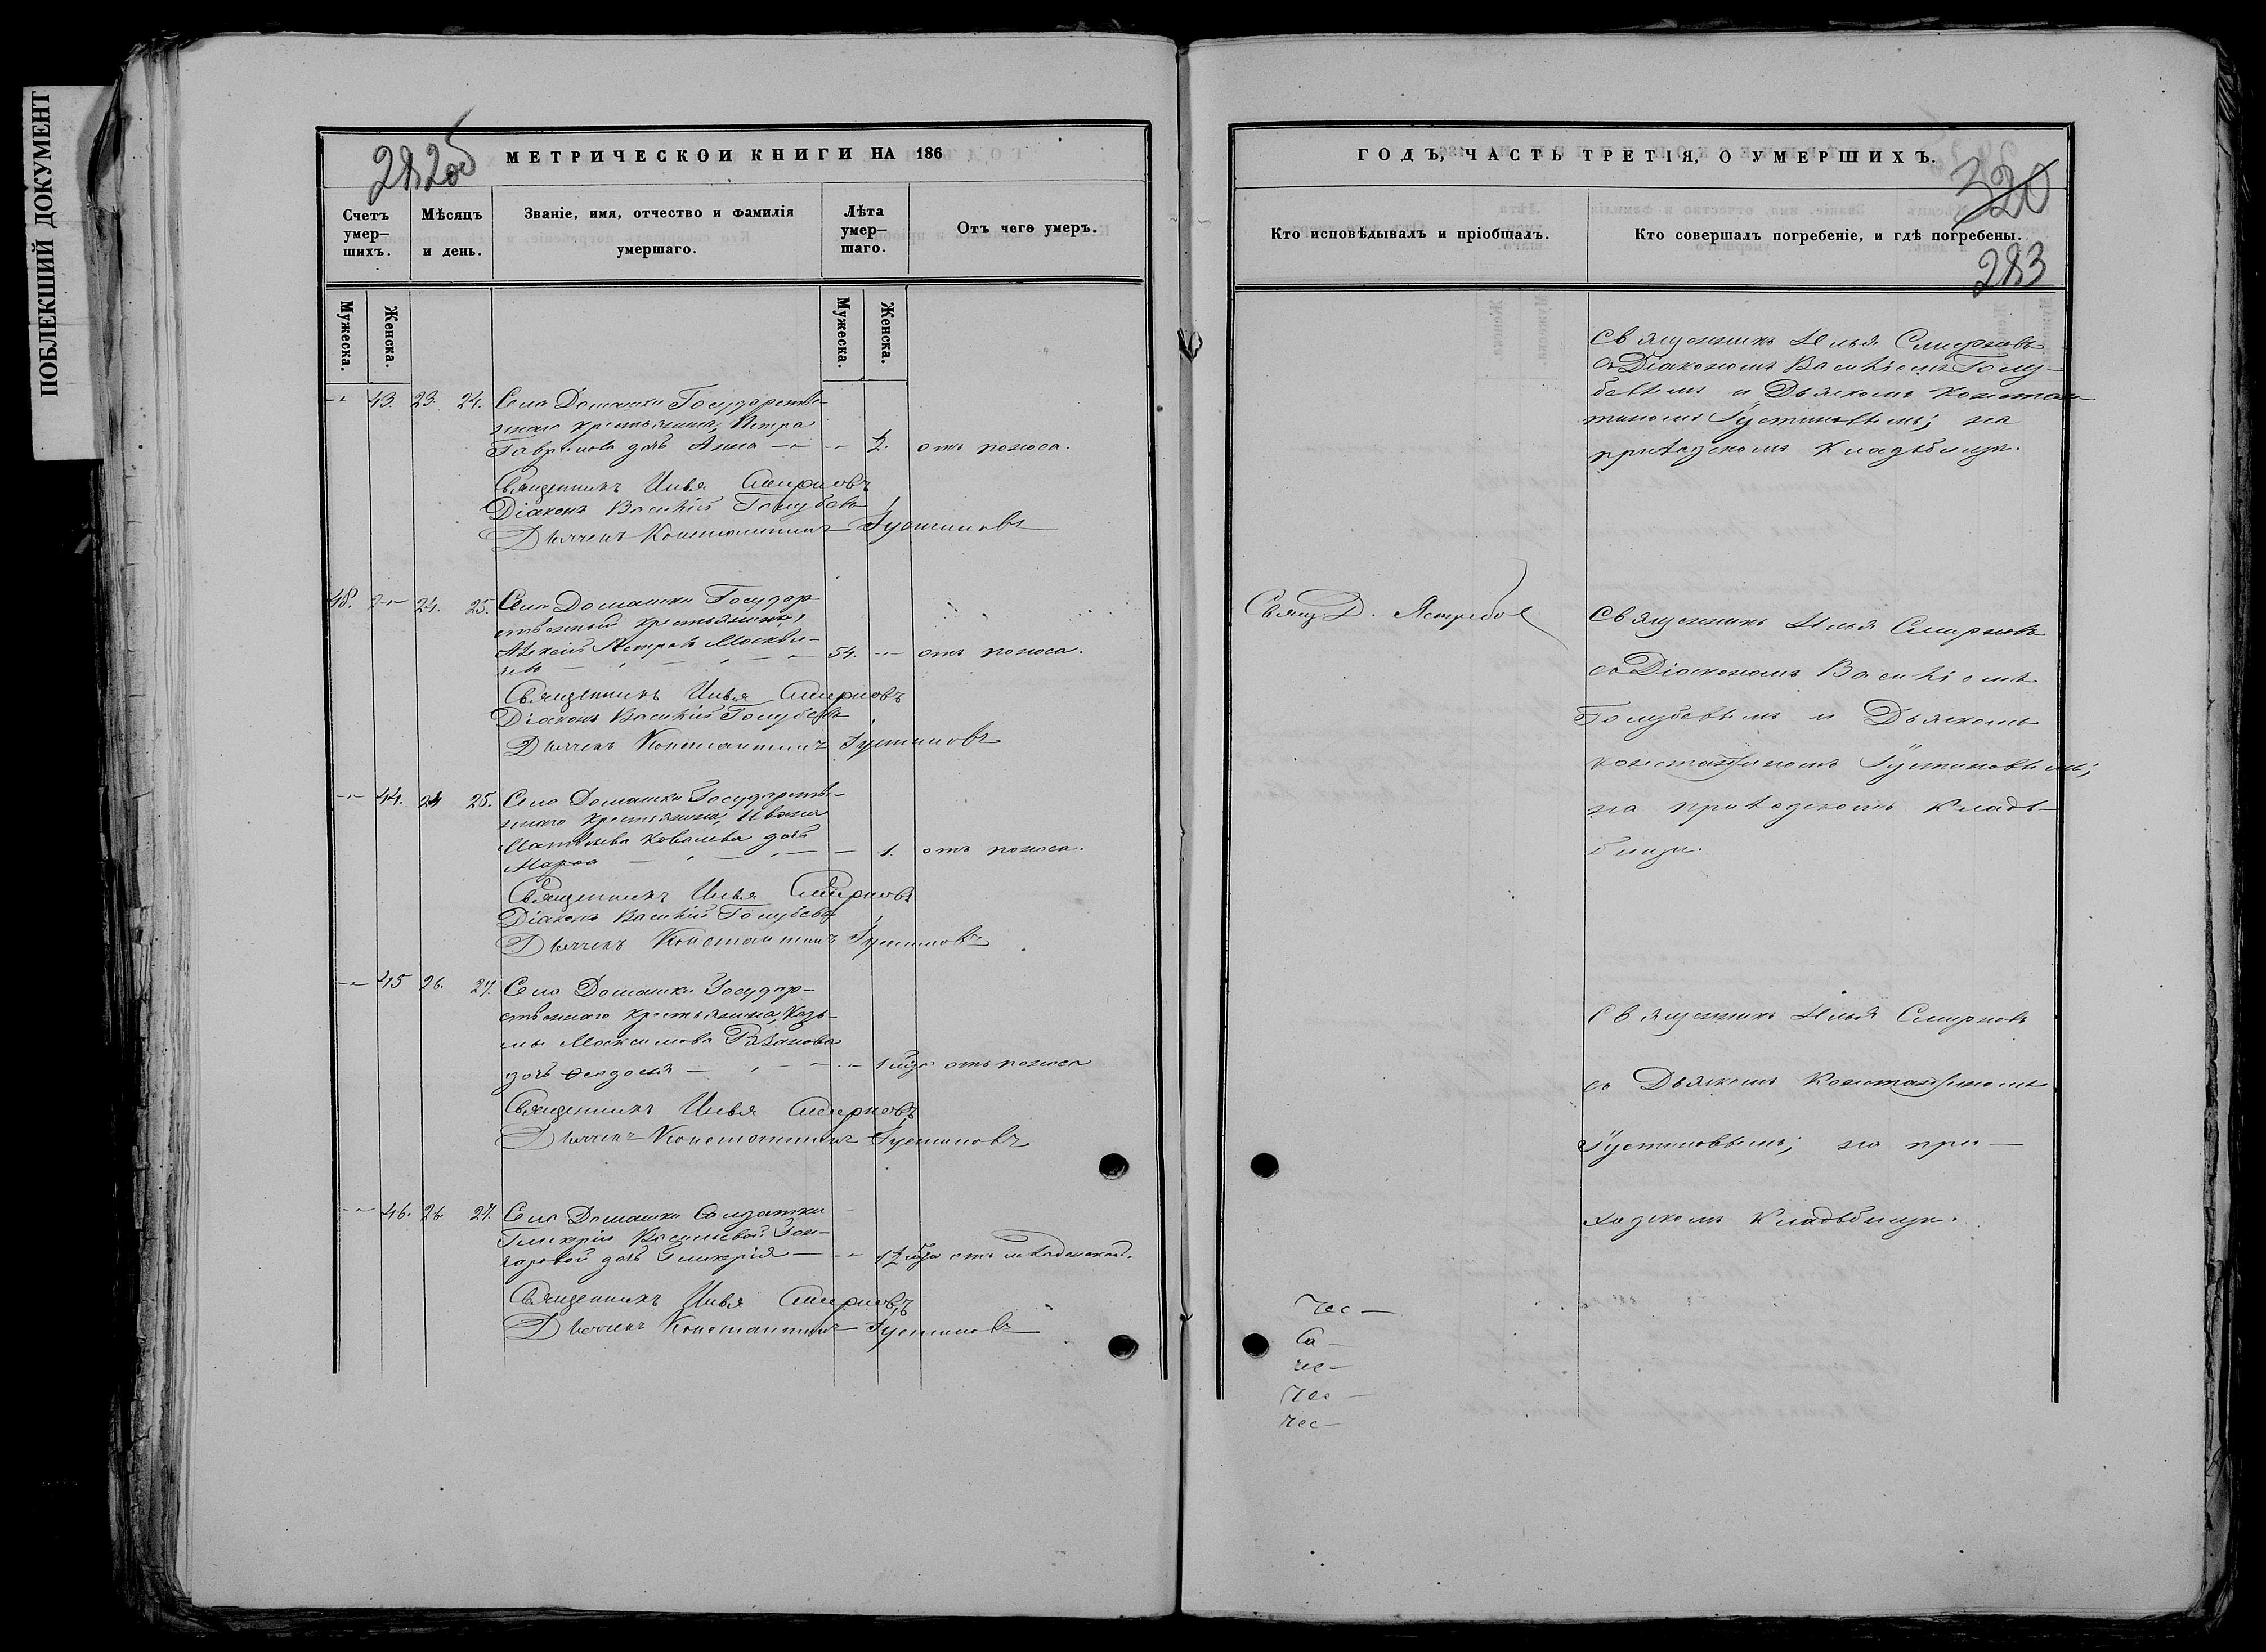 ПОБЛЕКШИЙ ДОКУМЕНТ
282об
МЕТРИЧЕСКОЙ КНИГИ НА 186
Счетъ умер-шихъ.
Мѣсяцъ и день.
Званіе, имя, отчество и фамилія умершаго.
Лѣта умер-шаго.
Отъ чего умеръ.
Мужеска.
Женска.
Мужеска.
Женска.
43. 23. 24. Села Домашки Государстве-
ннаго крестьянина, Петра
Гаврилова дочь Анна — ½. отъ поноса.
Священникъ Илья Смирновъ
Діаконъ Василій Голубевъ
Дьячекъ Константинъ Густиновъ
48. 24. 25. Села Домашки Государ-
ственный крестьянинъ,
Алексій Петровъ Москви-
чевъ — 54. — отъ поноса.
Священникъ Илья Смирновъ
Діаконъ Василій Голубевъ
Дьячекъ Константинъ Густиновъ
44. 24 25. Села Домашки Государстве-
ннаго крестьянина, Ивана
Матвѣева Ковалева дочь
Марѳа — 1. отъ поноса.
Священникъ Илья Смирновъ
Діаконъ Василій Голубевъ
Дьячекъ Константинъ Густиновъ
45 26. 27. Села Домашки Государ-
ственнаго крестьянина, Козь-
мы Максимова Рѣзанова
дочь Ѳеодосія — 1 года отъ поноса
Священникъ Илья Смирновъ
Дьячекъ Константинъ Густиновъ
46. 26. 27. Села Домашки Солдатки
Гликеріи Васильевой Гон-
чаровой дочь Гликерія — 1½ года отъ младенской.
Священникъ Илья Смирновъ
Дьячекъ Константинъ Густиновъ
ГОДЪ, ЧАСТЬ ТРЕТІЯ, О УМЕРШИХЪ.
320
283
Кто исповѣдывалъ и пріобщалъ.
Кто совершалъ погребеніе, и гдѣ погребены.
Священникъ Илья Смирновъ
съ Діакономъ Василіемъ Голу-
бевымъ и Дьячкомъ Констан-
тиномъ Густиновымъ; на
приходскомъ Кладбищѣ.
Свящ. Д. Ястребов
Священникъ Илья Смирновъ
съ Діакономъ Василіемъ
Голубевымъ и Дьячкомъ
Константиномъ Густиновымъ;
на приходскомъ Кладъ-
бищѣ.
Священникъ Илья Смирновъ
съ Дьячкомъ Константиномъ
Густиновымъ; на при-
ходскомъ Кладъбищѣ.